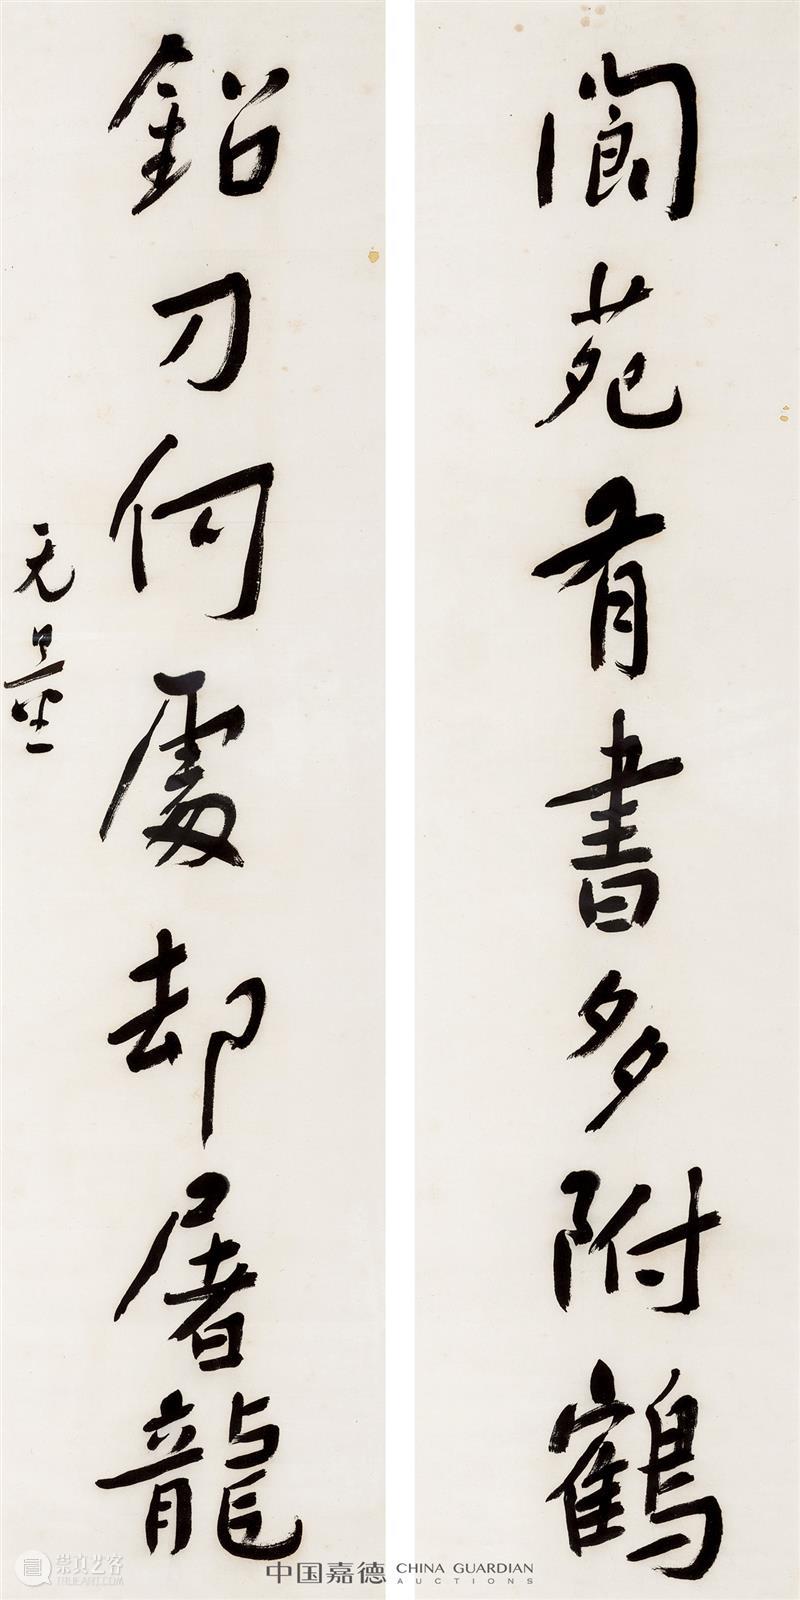 閬苑有書多附鶴
鉛刀何處却屠龍
无量
中国嘉德 CHINA GUARDIAN AUCTIONS
崇真艺客
TRUEART.COM